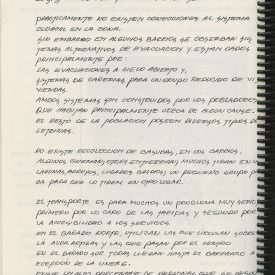 PRACTICAMENTE NO EXISTEN CONECCIONES AL SISTEMA
CLOACAL EN LA ZONA.
SIN EMBARGO EN ALGUNOS BARRIOS SE OBSERVAN SIS
TEMAS ALTERNATIVOS DE EVACUACION Y ESTAN DADOS
PRINCIPALMENTE POR:
LAS EVACUACIONES A CIELO ABIERTO Y,
SISTEMAS DE CAÑERIAS PARA UN GRUPO REDUCIDO DE VI
VIENDAS.
AMBOS SISTEMAS SON CONSTRUIDOS POR LOS POBLADORES
QUE HABITAN PRINCIPALMENTE CERCA DE ALGUN CAUCE.
EL RESTO DE LA POBLACION POSEEN DIVERSOS TIPOS DE
LETRINAS.
NO EXISTE RECOLECCION DE BASURAS, EN LOS BARRIOS.
ALGUNOS QUEMAN, OTROS ENTIERRAN; MUCHOS TIRAN EN
LAGUNAS, ARROYOS, LUGARES BALDIOS; UN PEQUEÑO GRUPO
PARA QUE LO TIREN EN OTRO LUGAR.
EL TRANSPORTE ES PARA MUCHOS UN PROBLEMA MUY
PRIMERO POR LO CARO DE LOS PASAJES Y SEGUNDO POR
LA ACCESIBILIDAD A LOS SERVICIOS
EN EL BAÑADO NORTE, UTILIZAN LAS QUE CIRCULAN SOBRE
LA AVDA ARTIGAS Y LAS QUE PASAN POR EL
EN EL BAÑADO QUE TODAS LLEGAN HASTA EL BAÑADO A
EXCEPCION DE LA LINEA